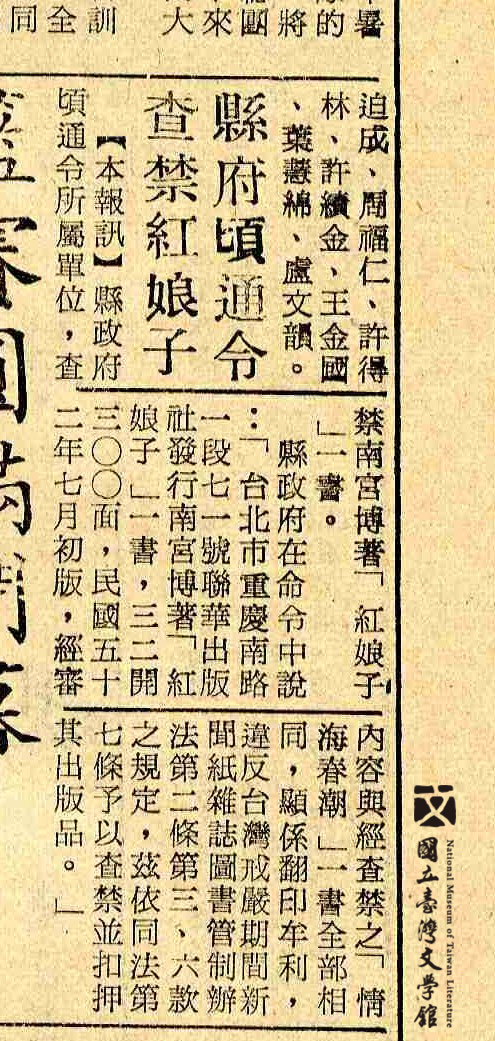 縣府頃通令
查禁紅娘子
【本報訊】縣政府
頃通令所屬單位，查
禁南宮博著「紅娘子
」一書。
縣政府在命令中說
：「台北市重慶南路
一段七一號聯華出版
社發行南宮博著「紅
娘子」一書，三二開
三〇〇面，民國五十
二年七月初版，經審
內容與經查禁之「情
海春潮」一書全部相
同，顯係翻印牟利，
違反台灣戒嚴期間新
聞紙雜誌圖書管制辦
法第二條第三、六款
之規定，茲依同法第
七條予以查禁並扣押
其出版品。」
迫成、周福仁、許得
林、許續金、王金國
、葉蕙綿、盧文韻。
國立臺灣文學館
National Museum of Taiwan Literature